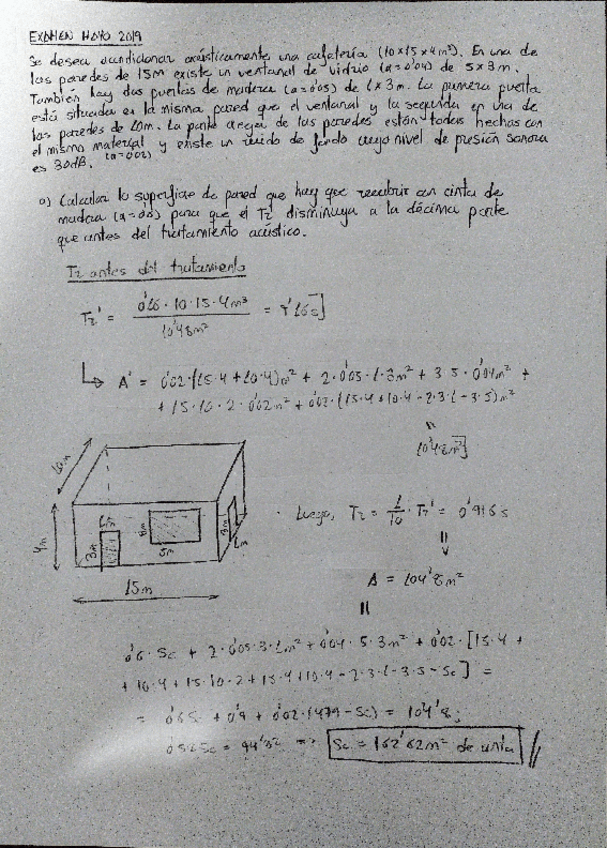 EXAMEN MAYO 2019
Se desea acondicionar acústicamente una cafetería (10x15x4m³). En una de
las paredes de 15m existe un ventanal de vidrio (a=0'04) de 5x3m.
También hay dos puertas de madera (a=0'05) de 1x3m. La primera puerta
está situada en la misma pared que el ventanal y la segunda en una de
las paredes de 10m. La parte de las paredes están todas hechas con
el mismo material y existe un ruido de fondo cuyo nivel de presión sonora
es 30dB. (a=0'02)
a) Calcular la superficie de pared que hay que recubrir con
madera para que el Tr disminuya a la décima parte
que antes del tratamiento acústico.
Tr antes del tratamiento
Tr' = 0'16·10·15·4m³ / 10'48m² = 9'16s]
A' = 0'02·(15·4+10·4)m² + 2·0'05·1·3m² + 3·5·0'04m² +
+ 15·10·2·0'02m² + 0'02·(15·4+10·4-2·3·1-3·5)m²
"
10'48m²]
10m
4m
1m
3m
3m
5m
3m
1m
15m
Luego, Tr = 1/10 · Tr' = 0'916s
A = 104'8m²
0'6·Sc + 2·0'05·3·1m² + 0'04·5·3m² + 0'02·[15·4+
+10·4+15·10·2+15·4+10·4-2·3·1-3·5-Sc] =
= 0'6Sc + 0'9 + 0'02·(479-Sc) = 104'8;
0'58Sc = 94'32 => Sc = 162'62m² de